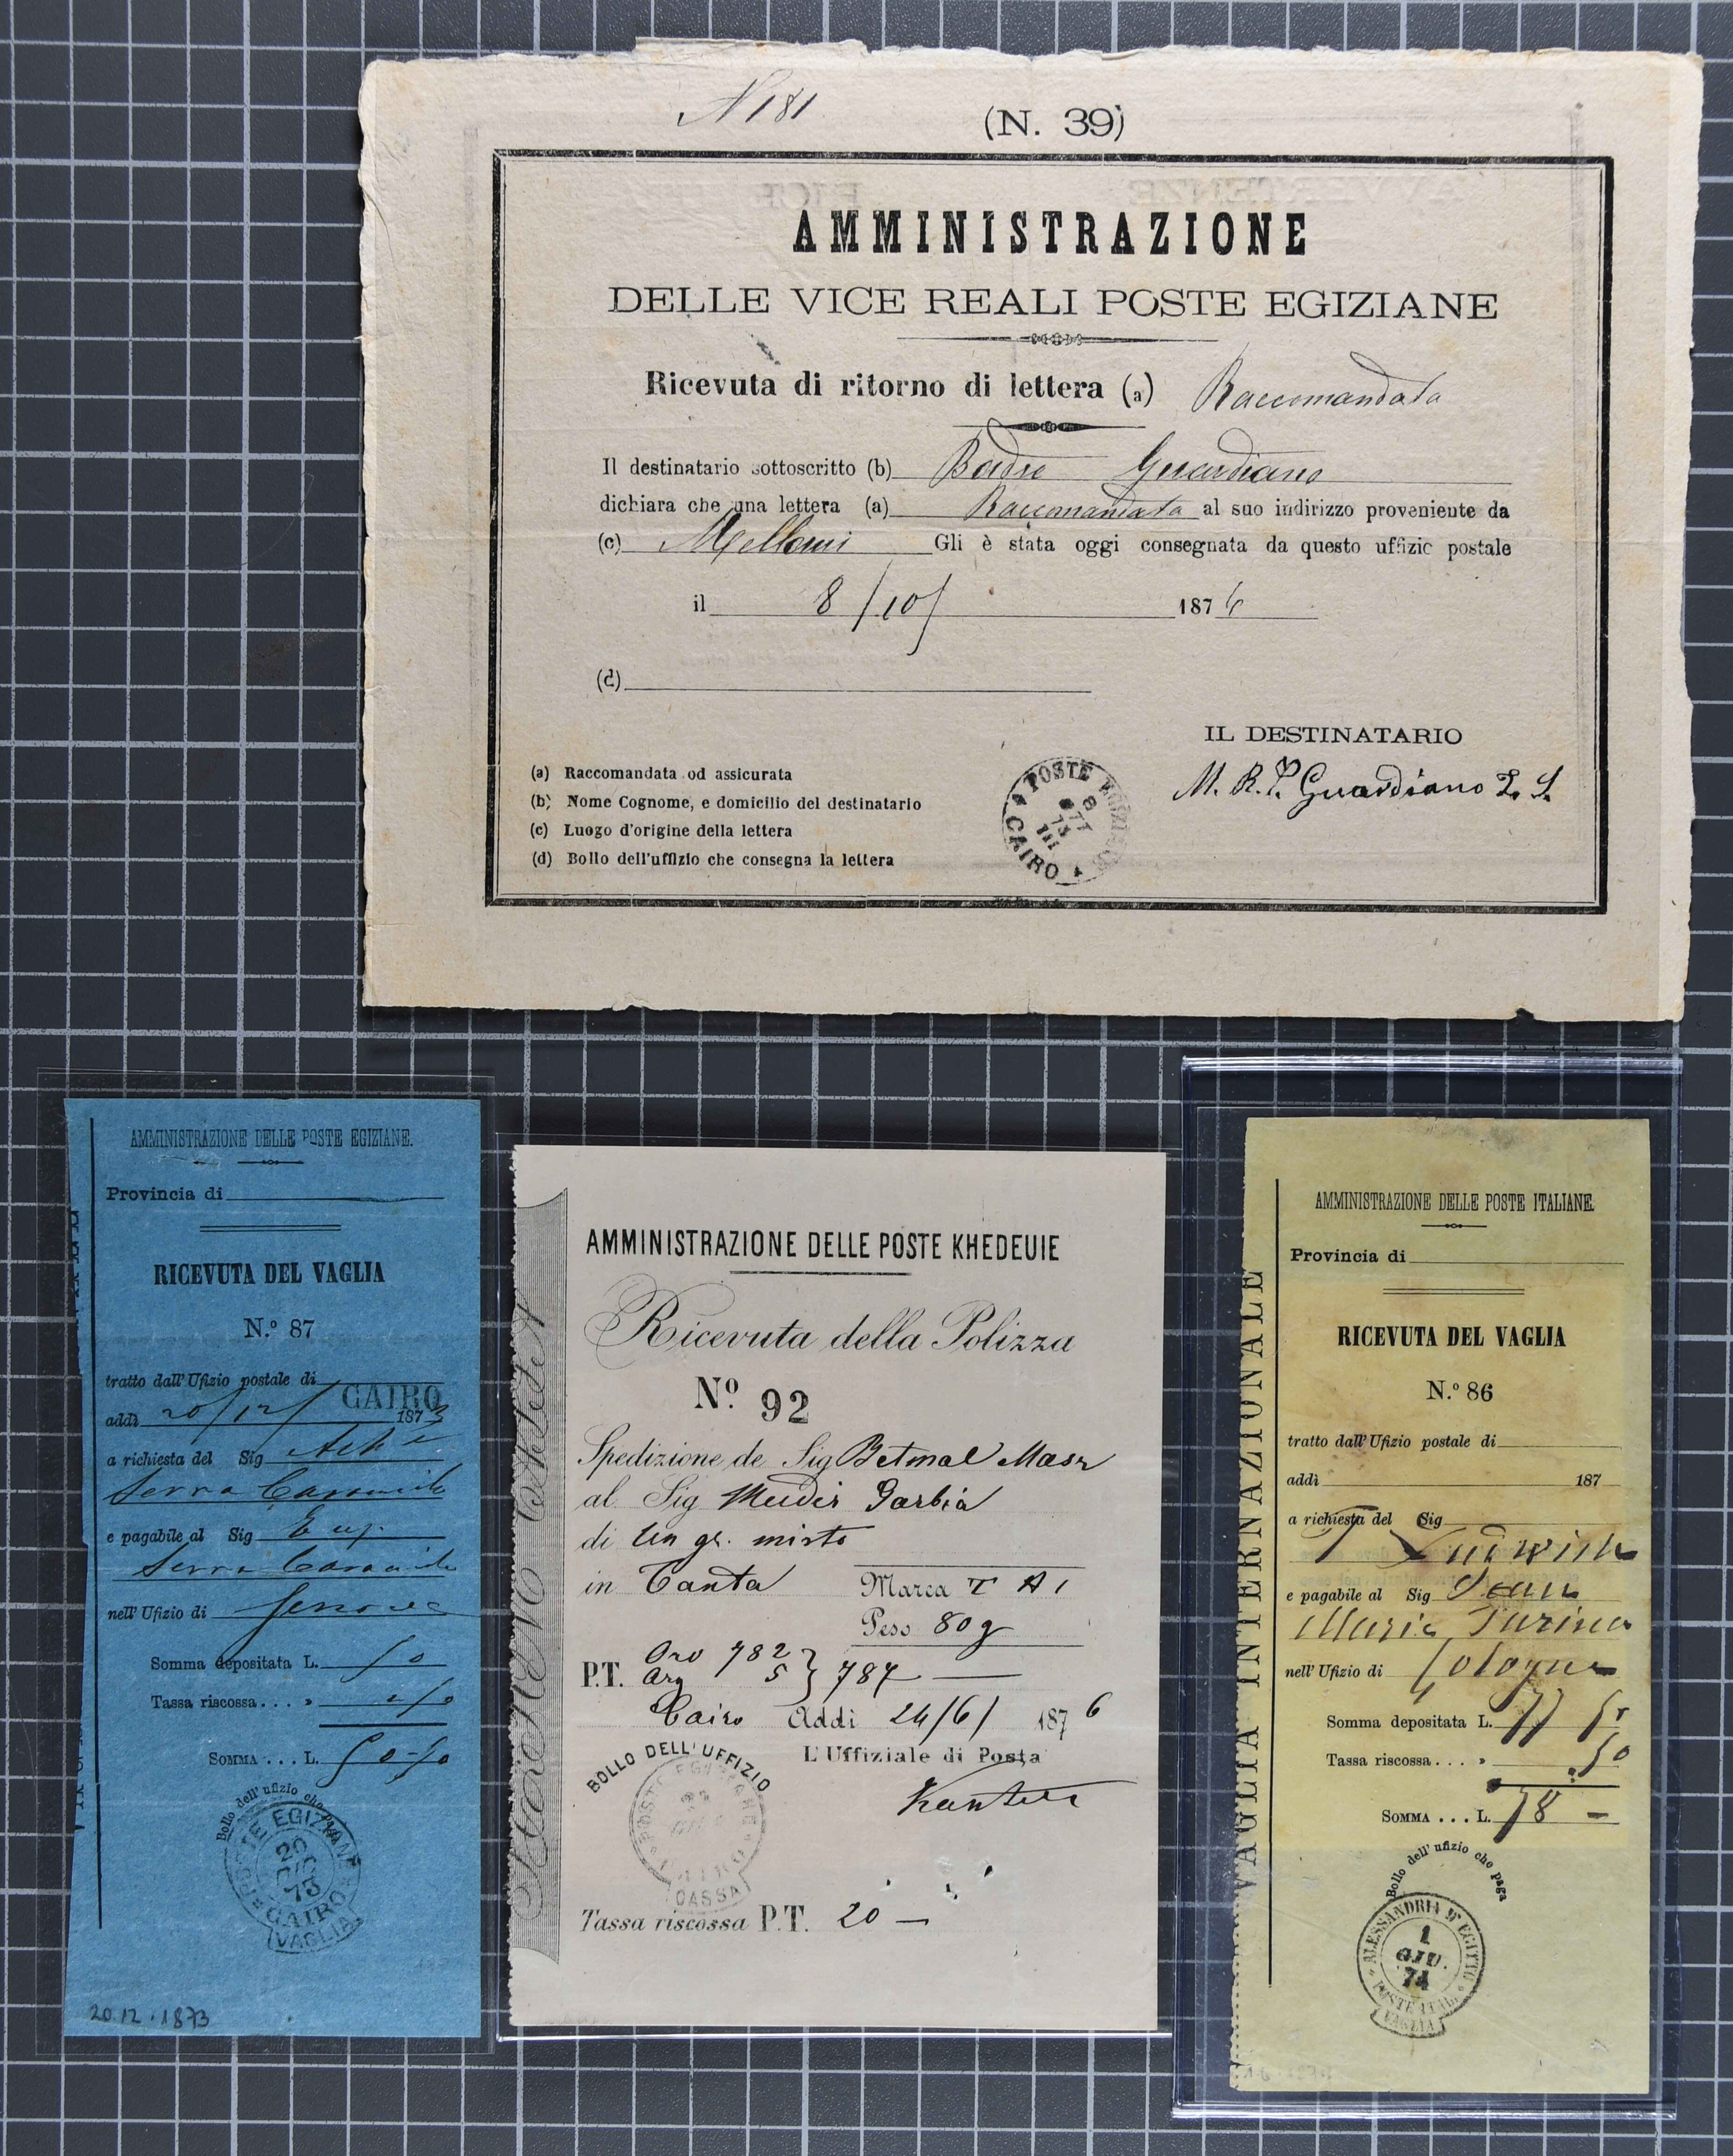 N 181
(N. 39)
AMMINISTRAZIONE
DELLE VICE REALI POSTE EGIZIANE
Ricevuta di ritorno di lettera (a) Raccomandata
Il destinatario sottoscritto (b) Padre Guardiano
dichiara che una lettera (a) Raccomandata al suo indirizzo proveniente da
(c) Gli è stata oggi consegnata da questo uffizio postale
il 8/10/ 1876
(d)
IL DESTINATARIO
M. R. P. Guardiano
(a) Raccomandata od assicurata
(b) Nome Cognome, e domicilio del destinatario
(c) Luogo d'origine della lettera
(d) Bollo dell'uffizio che consegna la lettera
POSTE EGIZIANE CAIRO
AMMINISTRAZIONE DELLE POSTE EGIZIANE.
Provincia di
RICEVUTA DEL VAGLIA
N.º 87
tratto dall'Ufizio postale di CAIRO
addì 20/12/ 1873
a richiesta del Sig
Serra
e pagabile al Sig Eug.
Serra
nell'Ufizio di Genova
Somma depositata L. 50
Tassa riscossa . . . »
SOMMA . . . L.
Bollo dell'ufizio che paga
POSTE EGIZIANE 20 73 CAIRO VAGLIA
20.12.1873
AMMINISTRAZIONE DELLE POSTE KHEDEUIE
Ricevuta della Polizza
Nº 92
Spedizione de Sig Betmal Masr
al Sig Mudir Garbia
di Un gr. misto
in Tanta Marca T A 1
Peso 80 g
P.T. Oro 782 Arg 5 } 787
Cairo Addì 24/6/ 1876
BOLLO DELL'UFFIZIO
L'Uffiziale di Posta
POSTE EGIZIANE CAIRO CASSA
Tassa riscossa P.T. 20 —
VAGLIA INTERNAZIONALE
AMMINISTRAZIONE DELLE POSTE ITALIANE.
Provincia di
RICEVUTA DEL VAGLIA
N.º 86
tratto dall'Ufizio postale di
addì 187
a richiesta del Sig
Ludwich
e pagabile al Sig Jean
Maria Turina
nell'Ufizio di Cologne
Somma depositata L. 77 50
Tassa riscossa . . . » . 50
SOMMA . . . L. 78 —
Bollo dell'ufizio che paga
ALESSANDRIA D'EGITTO 1 GIU. 74 POSTE ITAL. VAGLIA